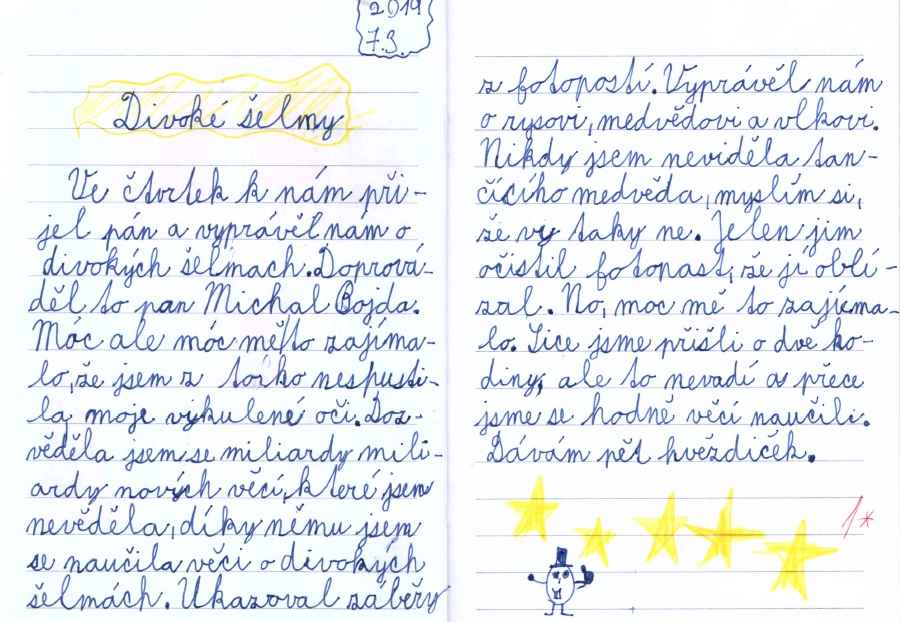 2019
7.3.
Divoké šelmy
Ve čtvrtek k nám při-
jel pán a vyprávěl nám o
divokých šelmách. Doprová-
děl to pan Michal Bojda.
Móc ale móc mě to zajíma-
lo, že jsem z toho nespusti-
la moje vykulené oči. Doz-
věděla jsem se miliardy mili-
ardy nových věcí, které jsem
nevěděla, díky němu jsem
se naučila věci o divokých
šelmách. Ukazoval záběry
z fotopastí. Vyprávěl nám
o rysovi, medvědovi a vlkovi.
Nikdy jsem neviděla tan-
čícího medvěda, myslím si,
že vy taky ne. Jelen jim
očistil fotopast, že ji oblí-
zal. No, moc mě to zajíma-
lo. Sice jsme přišli o dvě ho-
diny, ale to nevadí a přece
jsme se hodně věcí naučili.
Dávám pět hvězdiček.
1*